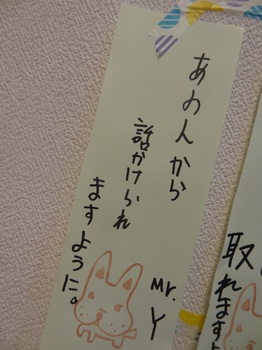 あの人から
話かけられ
ますように。
Mr.
Y
取れます